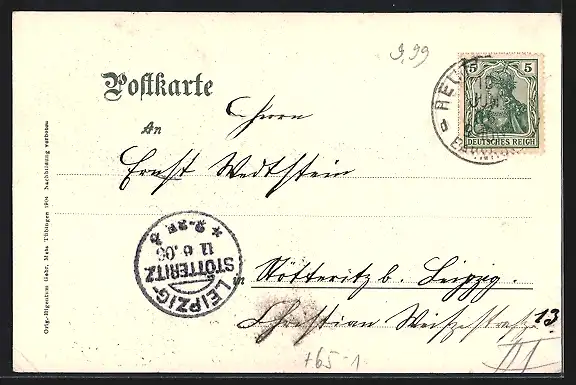 9,99
Postkarte
5 5
DEUTSCHES REICH
REUT
An
Herrn
Ernst Wedtstein
LEIPZIG-STÖTTERITZ
11 6.06
* 2-3N. b
Stötteritz b. Leipzig.
Christian Weißestraße 13.
III
+65-1
Orig.-Eigentum Gebr. Metz Tübingen 1904 Nachbildung verboten